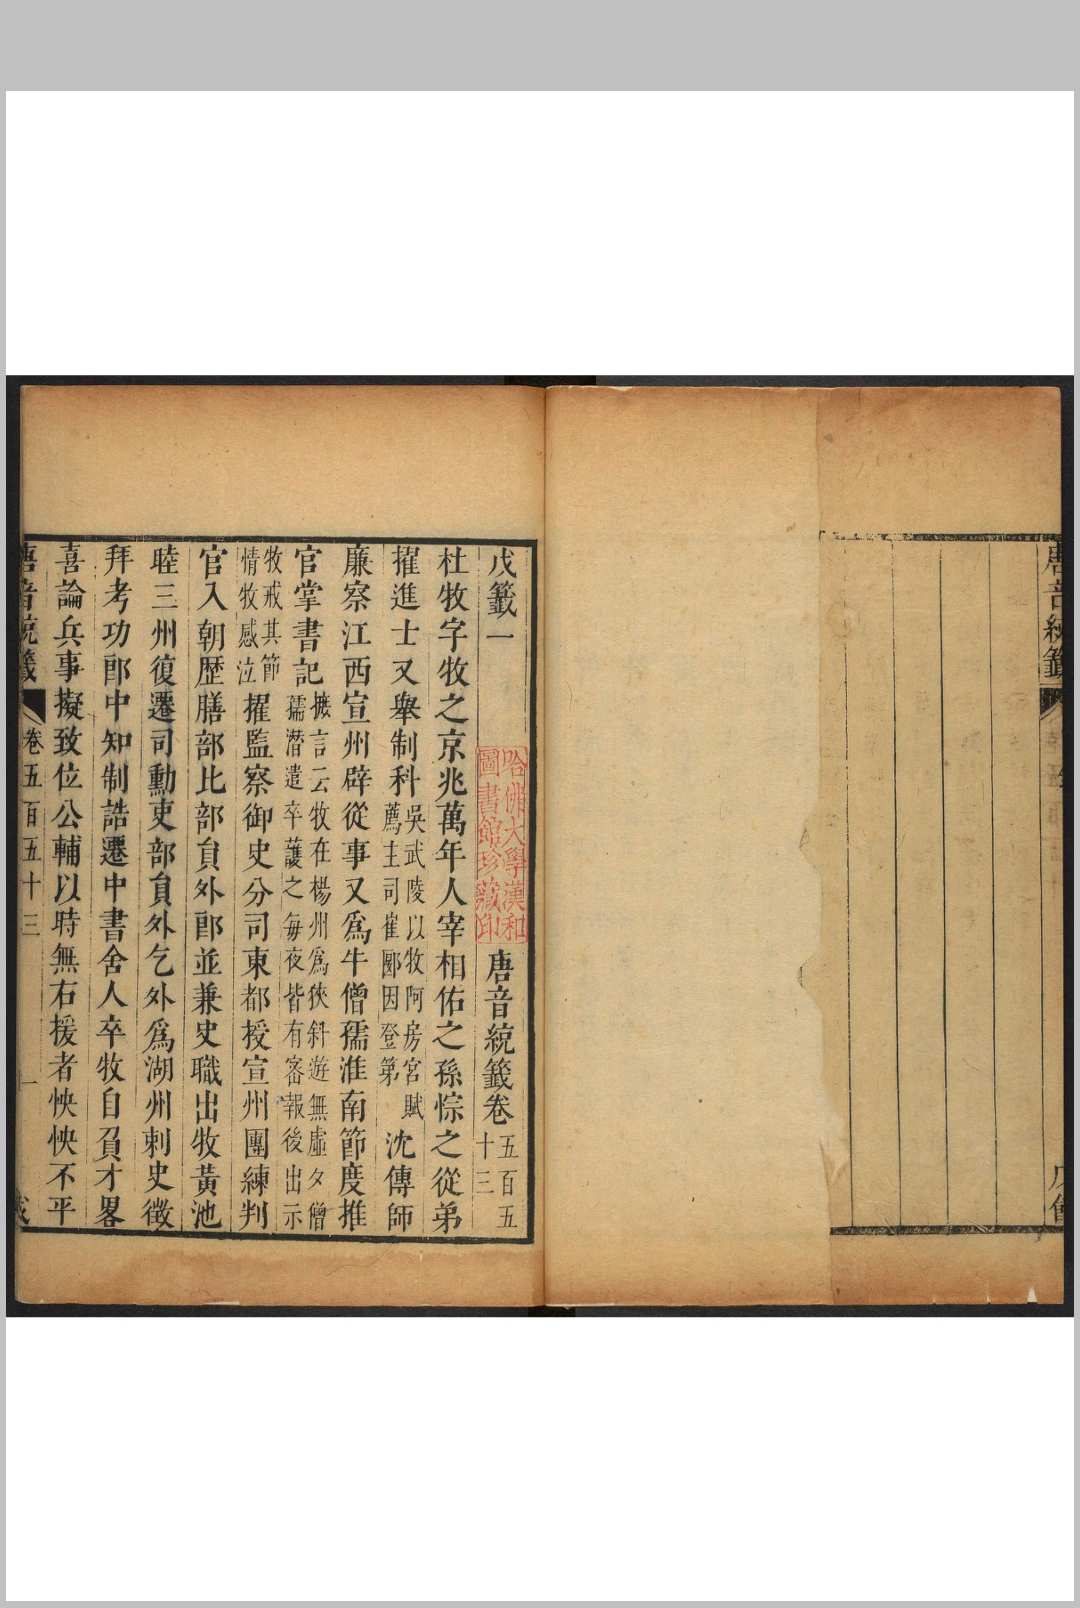 唐音統籤
戊籤一
唐音統籤卷五百五十三
哈佛大學漢和
圖書館珍藏印
杜牧字牧之京兆萬年人宰相佑之孫悰之從弟
擢進士又舉制科
吳武陵以牧阿房宮賦
薦主司崔郾因登第
沈傳師
廉察江西宣州辟從事又爲牛僧孺淮南節度推
官掌書記
摭言云牧在楊州爲狹斜遊無虛夕僧
孺潛遣卒護之每夜皆有密報後出示
牧戒其節
情牧感泣
擢監察御史分司東都授宣州團練判
官入朝歴膳部比部貟外郎並兼史職出牧黃池
睦三州復遷司勳吏部貟外乞外爲湖州刺史徵
拜考功郎中知制誥遷中書舍人卒牧自負才畧
喜論兵事擬致位公輔以時無右援者怏怏不平
唐音統籤
卷五百五十三
一